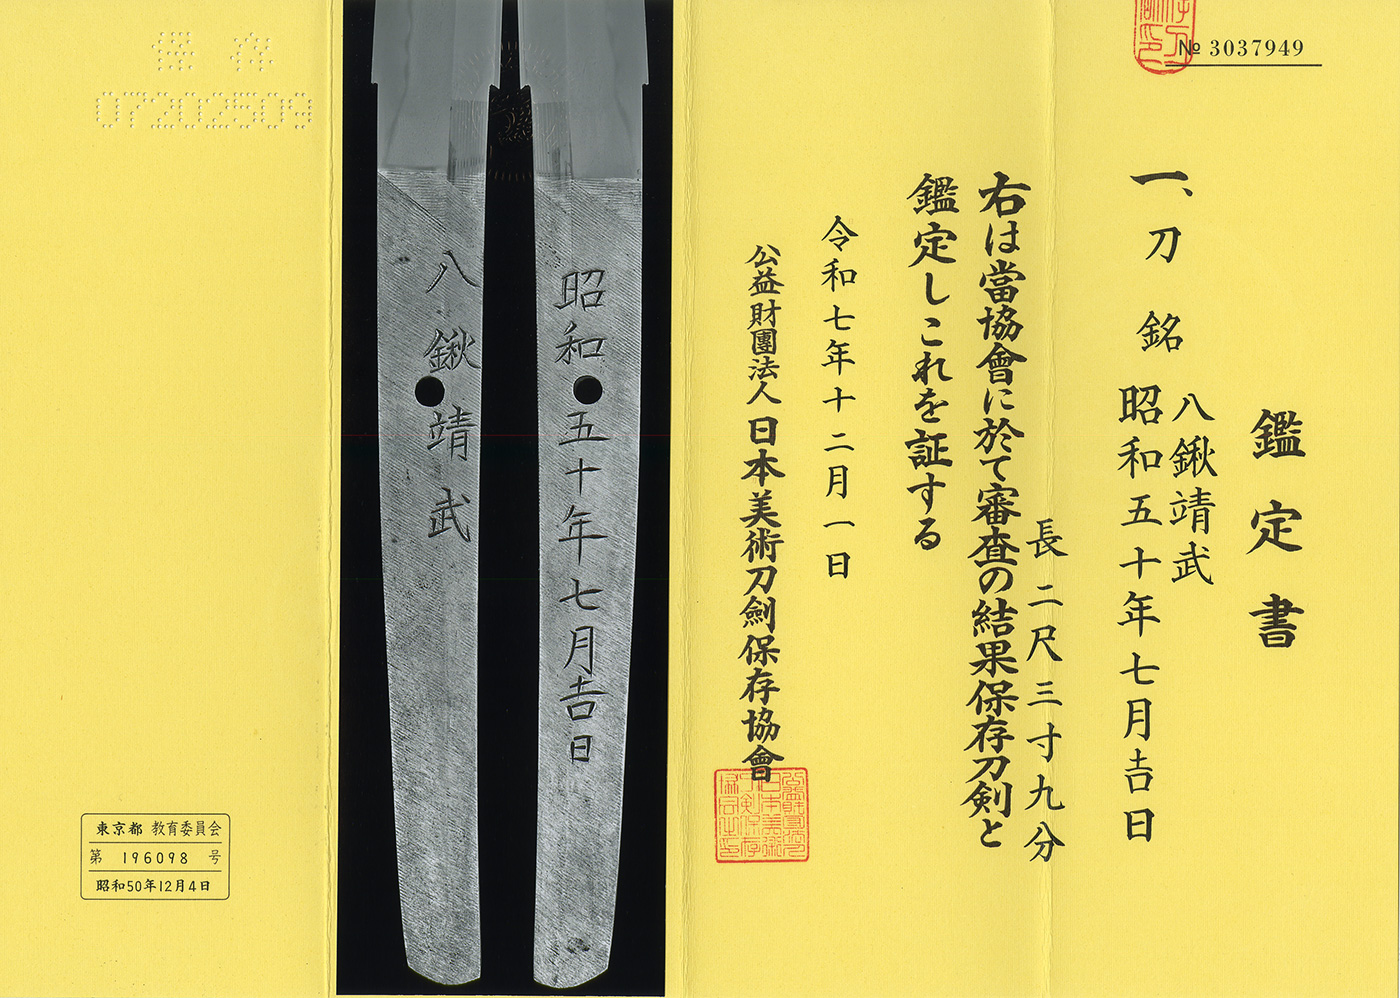 № 3037949
鑑定書
一、刀 銘 八鍬靖武
昭和五十年七月𠮷日
長 二尺三寸九分
右は當協會に於て審査の結果保存刀剣と
鑑定しこれを証する
令和七年十二月一日
公益財團法人 日本美術刀劍保存協會
昭和五十年七月𠮷日
八鍬靖武
保存
07202509
東京都 教育委員会
第 196098 号
昭和50年12月4日